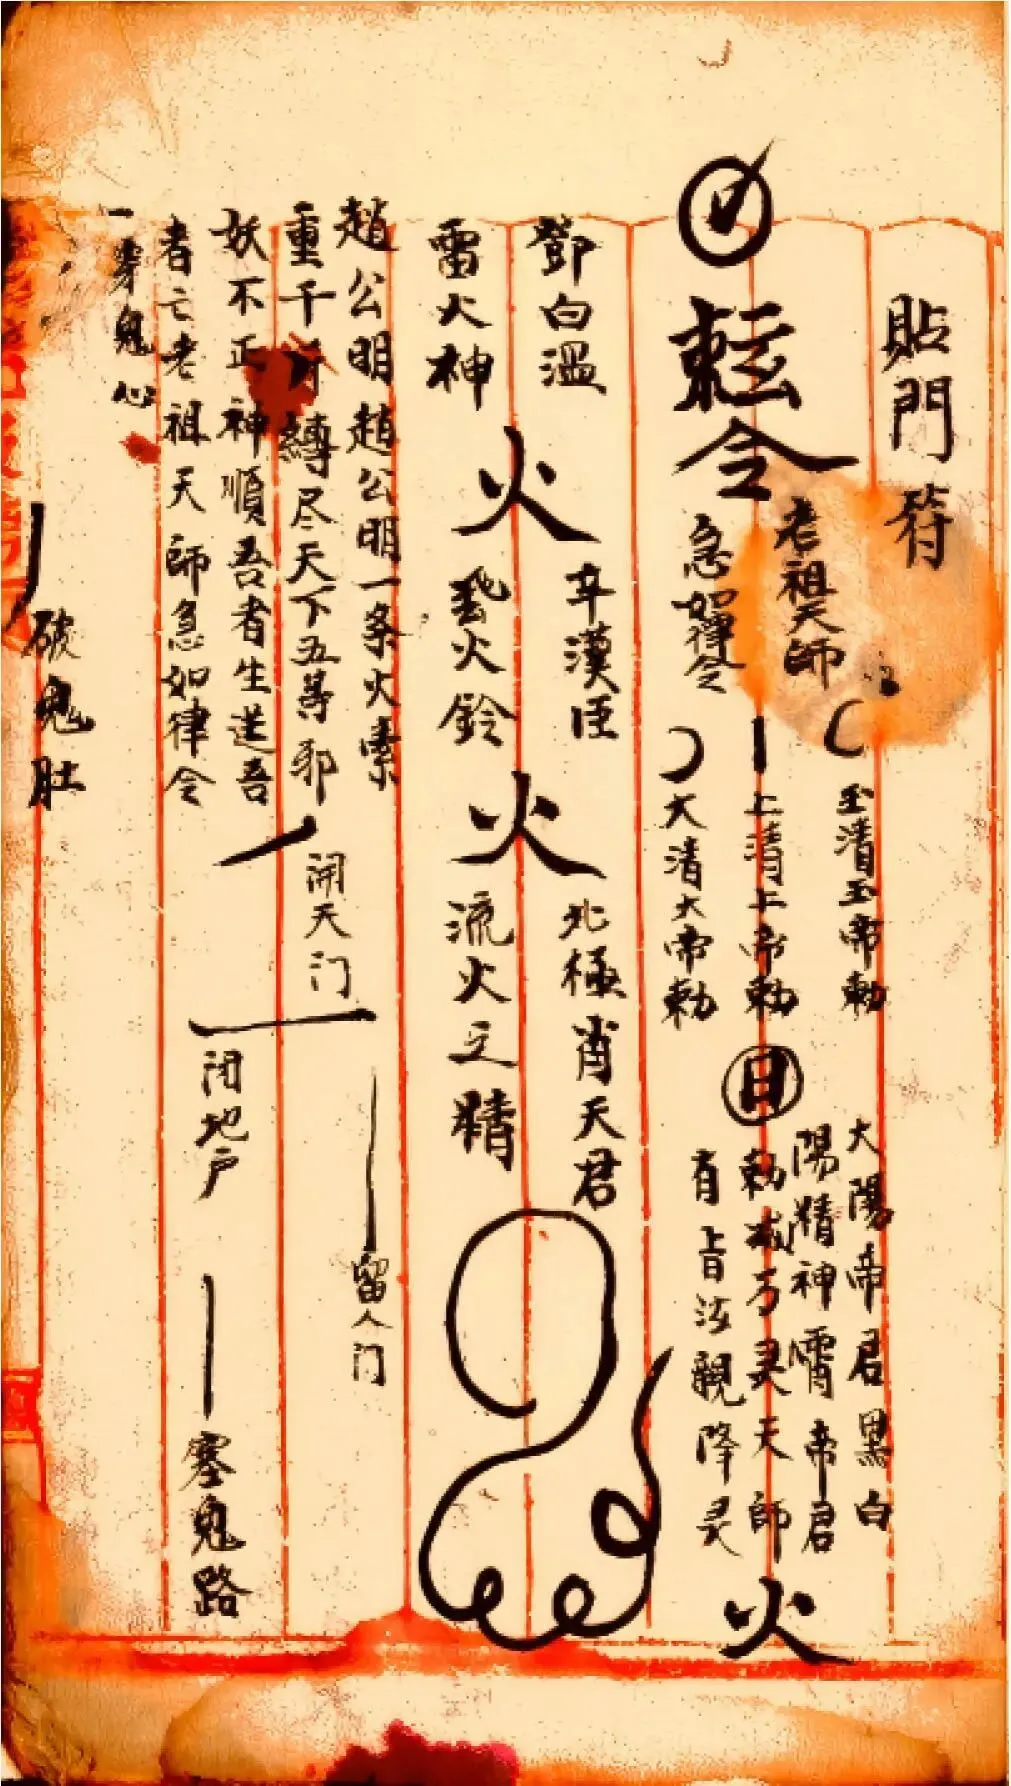 貼門符
日
令
老祖天師
急如律令
玉清玉帝勅
上清上帝勅
大清大帝勅
日
大陽帝君黑白
陽精神霄帝君
勅滅万灵天師
有旨法親降灵
火
鄧白溫
雷火神
火
辛漢臣
飛火鈴
火
北極肖天君
流火之精
趙公明趙公明一条火索
重千斤縛尽天下五等邪
妖不正神順吾者生逆吾
者亡老祖天師急如律令
開天门
闭地户
留人门
塞鬼路
一穿鬼心
破鬼肚